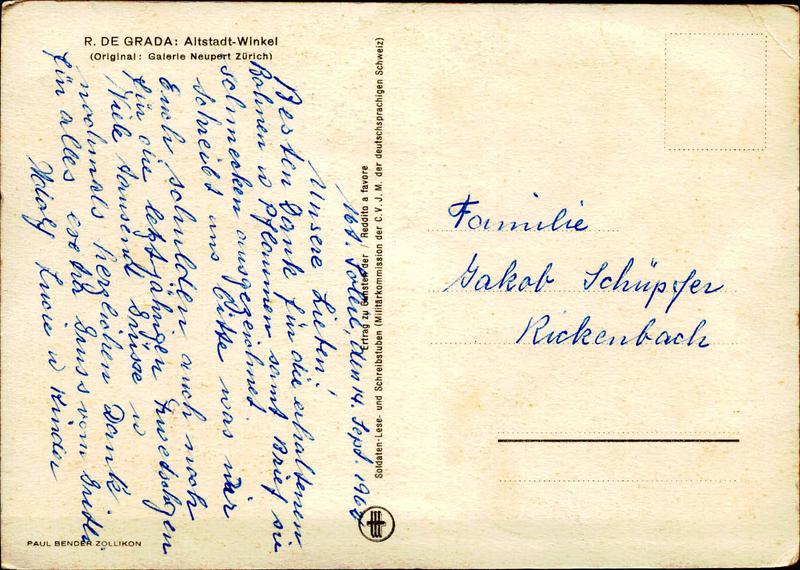 R. DE GRADA: Altstadt-Winkel
(Original: Galerie Neupert Zürich)
Mt. Soleil, den 14. Sept. 196
Unsere Lieben!
Besten Dank für die erhaltenen
Bohnen u Pflaumen samt Brief sie
schmecken ausgezeichnet.
Schreibt uns bitte was wir
Euch schulden auch noch
für die letztjährigen Zwetschgen
Viele tausend Grüsse u
nochmals herzlichen Dank
für alles extra Gruss vom
Adolf Luzie u Kinder
Ertrag zu Gunsten der / Reddito a favore
Soldaten-Lese- und Schreibstuben (Militärkommission der C.V.J.M. der deutschsprachigen Schweiz)
PAUL BENDER ZOLLIKON
Familie
Jakob Schüpfer
Rickenbach